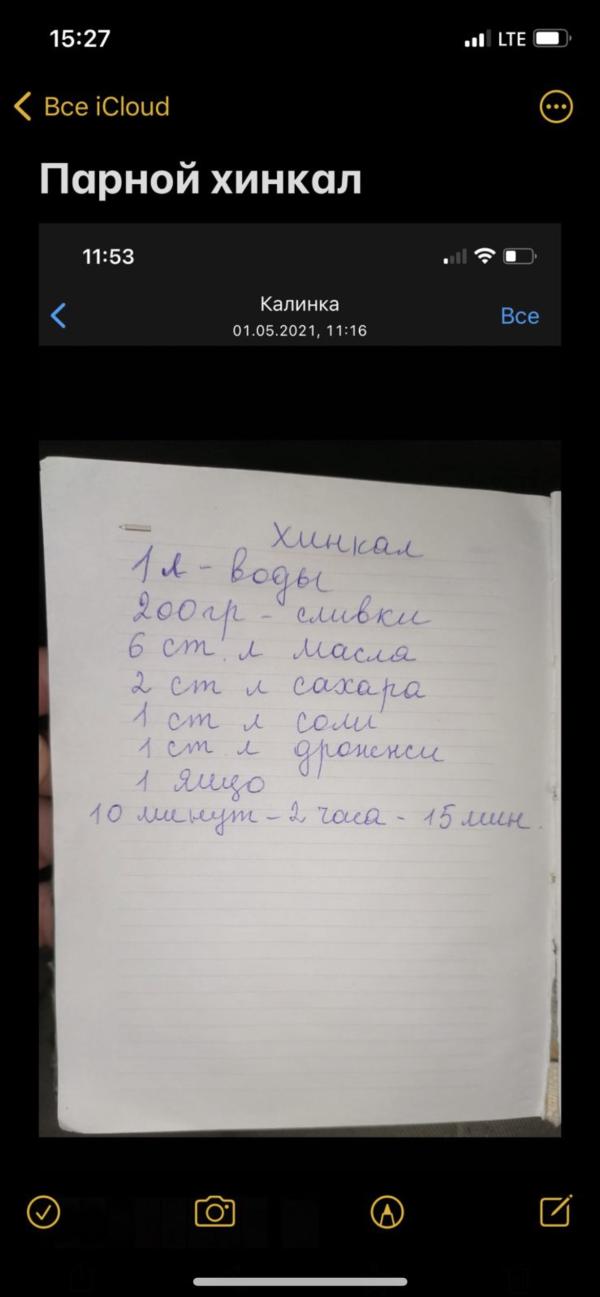 15:27
LTE
Все iCloud
Парной хинкал
11:53
Калинка
01.05.2021, 11:16
Все
Хинкал
1 л - воды
200 гр - сливки
6 ст. л масла
2 ст л сахара
1 ст л соли
1 ст. л дрожжи
1 яицо
10 минут - 2 часа - 15 мин.